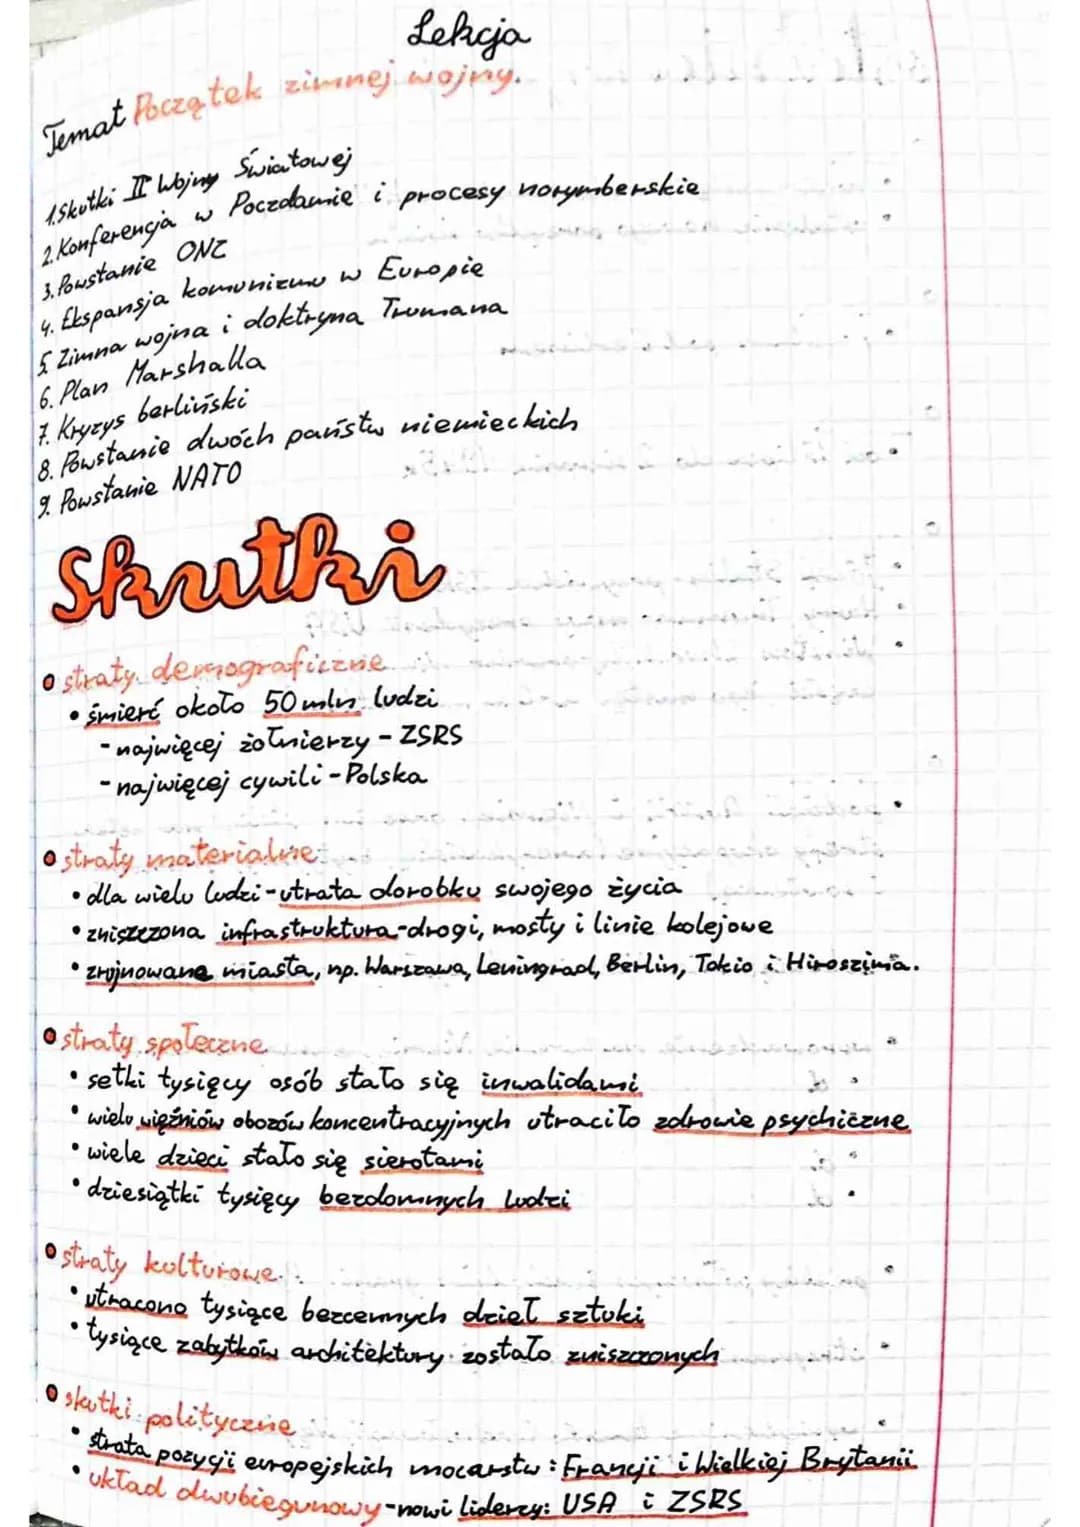 Lekcja
Temat Początek zimnej wojny.
1. Skutki II Wojny Światowej
2. Konferencja w Poczdamie i procesy norymberskie
3. Powstanie ONZ
4. Ekspansja komunizmu w Europie
5. Zimna wojna i doktryna Trumana
6. Plan Marshalla
7. Kryzys berliński
8. Powstanie dwóch państw niemieckich
9. Powstanie NATO
Skutki
straty demograficzne
• śmierć około 50 mln ludzi
- najwięcej żołnierzy - ZSRS
- najwięcej cywili - Polska
straty materialne:
• dla wielu ludzi - utrata dorobku swojego życia
• zniszczona infrastruktura - drogi, mosty i linie kolejowe
• zrujnowane miasta, np. Warszawa, Leningrad, Berlin, Tokio i Hiroszima.
straty społeczne
• setki tysięcy osób stało się inwalidami
• wielu więźniów obozów koncentracyjnych utraciło zdrowie psychiczne
• wiele dzieci stało się sierotami
• dziesiątki tysięcy bezdomnych ludzi
straty kulturowe
• utracono tysiące bezcennych dzieł sztuki
• tysiące zabytków architektury zostało zniszczonych
skutki polityczne
• strata pozycji europejskich mocarstw: Francji i Wielkiej Brytanii
• układ dwubiegunowy - nowi liderzy: USA i ZSRS